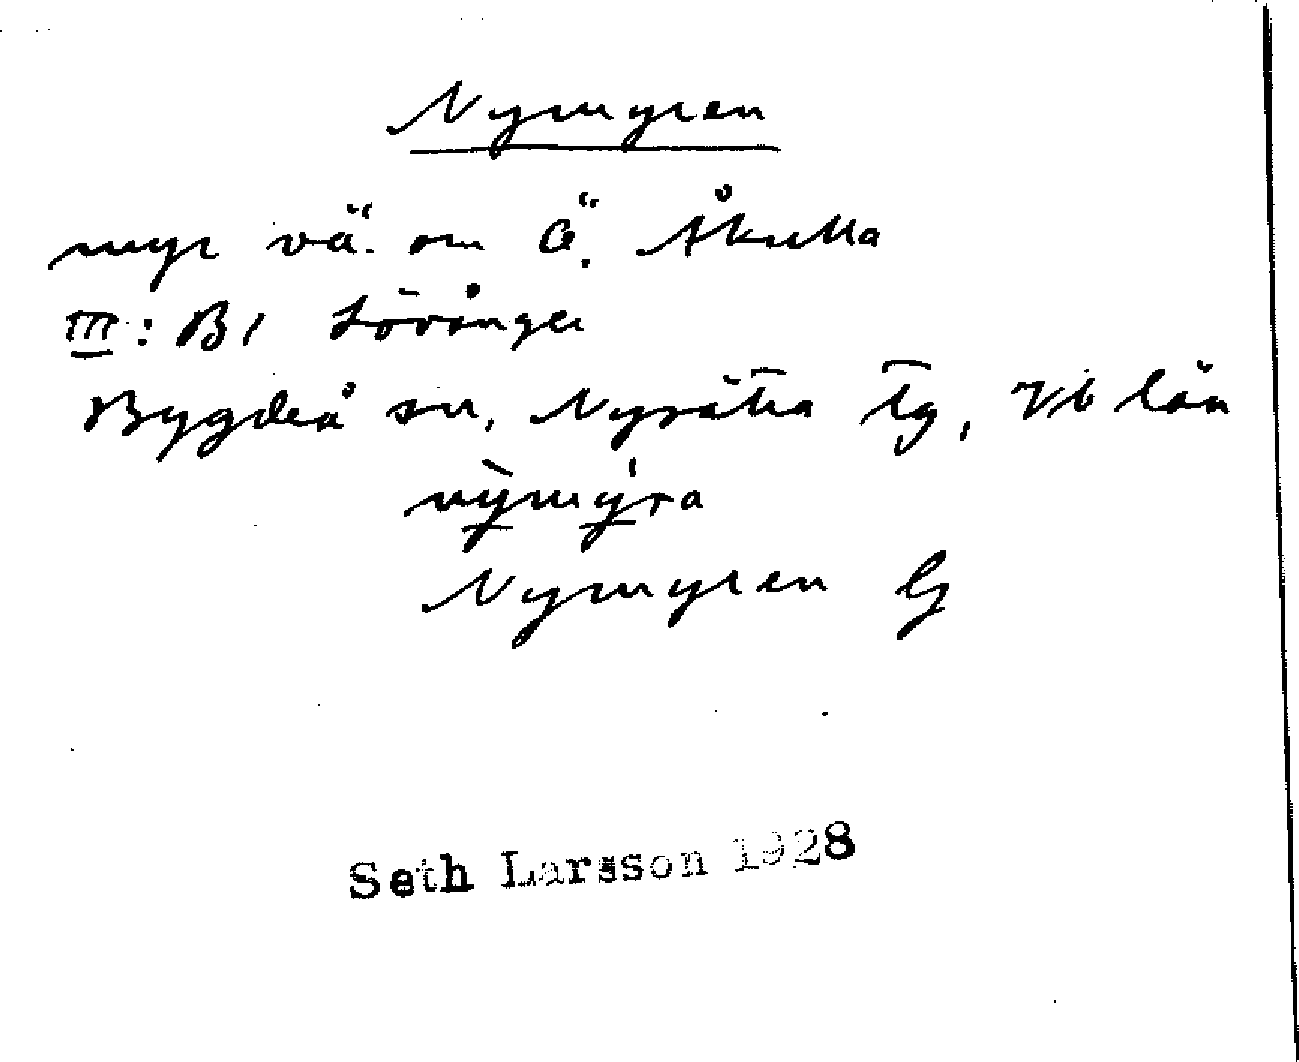 Nymyren
myr vä. om Ö. Åkulla
III: B1 Lövånger
Bygdeå sn, Nysätra tg, Vb län
nỳmýra
Nymyren G
Seth Larsson 1928